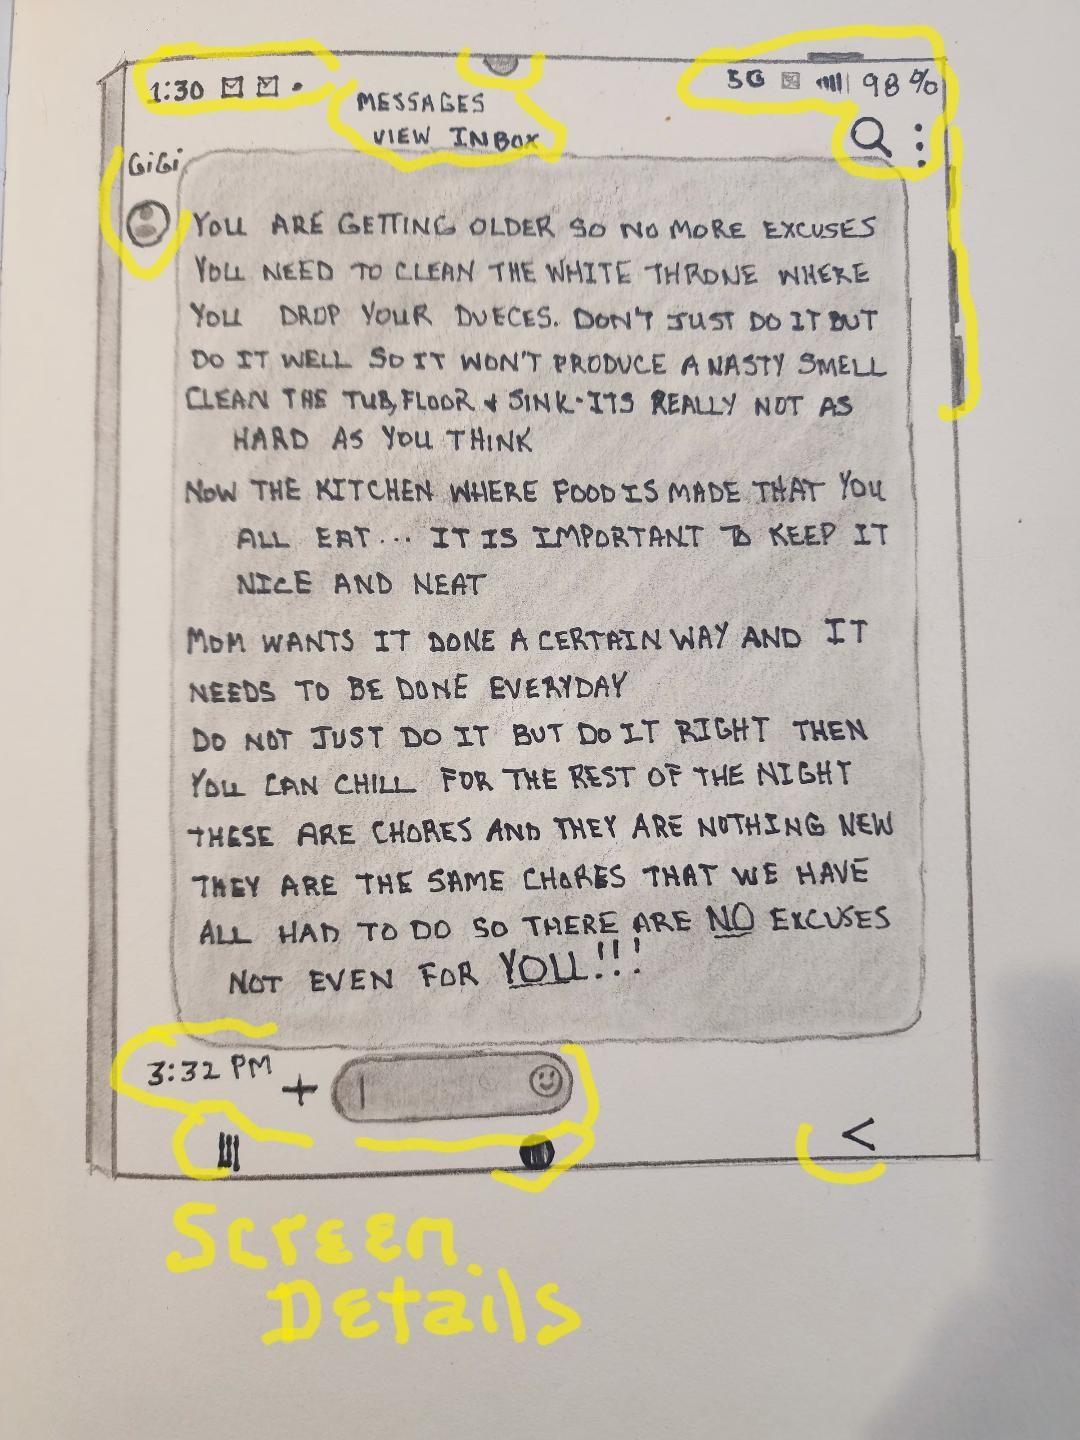 1:30
5G 98%
MESSAGES
VIEW INBOX
GiGi
YOU ARE GETTING OLDER SO NO MORE EXCUSES
YOU NEED TO CLEAN THE WHITE THRONE WHERE
YOU DROP YOUR DUECES. DON'T JUST DO IT BUT
DO IT WELL SO IT WON'T PRODUCE A NASTY SMELL
CLEAN THE TUB, FLOOR & SINK-ITS REALLY NOT AS
HARD AS YOU THINK
NOW THE KITCHEN WHERE FOOD IS MADE THAT YOU
ALL EAT... IT IS IMPORTANT TO KEEP IT
NICE AND NEAT
MOM WANTS IT DONE A CERTAIN WAY AND IT
NEEDS TO BE DONE EVERYDAY
DO NOT JUST DO IT BUT DO IT RIGHT THEN
YOU CAN CHILL FOR THE REST OF THE NIGHT
THESE ARE CHORES AND THEY ARE NOTHING NEW
THEY ARE THE SAME CHORES THAT WE HAVE
ALL HAD TO DO SO THERE ARE NO EXCUSES
NOT EVEN FOR YOU!!!
3:32 PM
Screen
Details